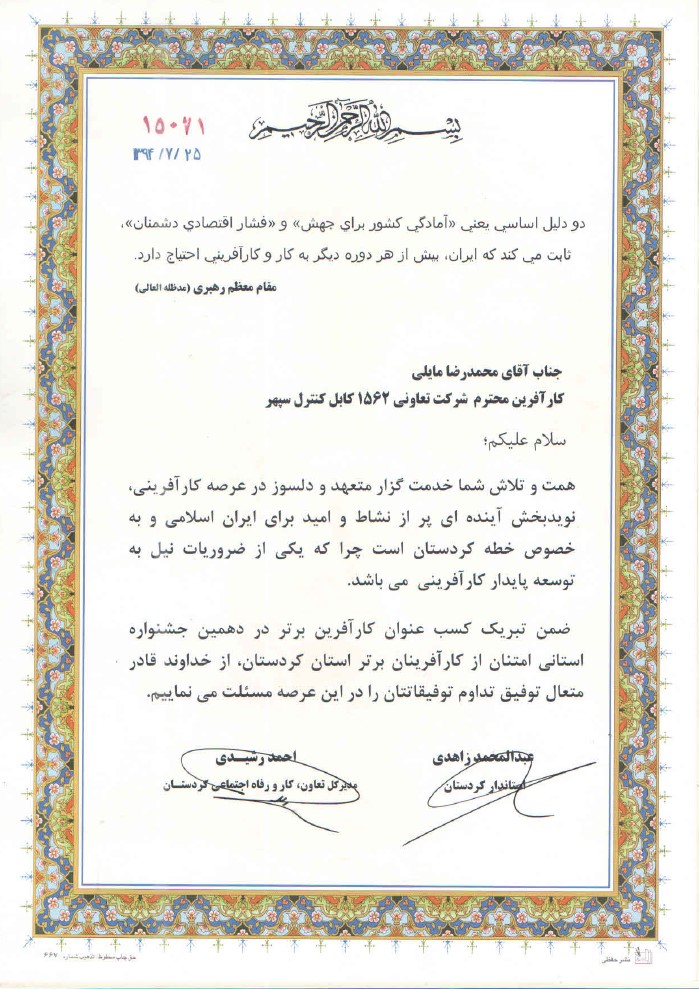 بسم الله الرحمن الرحیم
۱۵۰۷۱
۱۳۹۴/۷/۲۵
دو دلیل اساسي یعني «آمادگي کشور براي جهش» و «فشار اقتصادي دشمنان»،
ثابت مي کند که ایران، بیش از هر دوره دیگر به کار و کارآفریني احتیاج دارد.
مقام معظم رهبری (مدظله العالی)
جناب آقای محمدرضا مایلی
کارآفرین محترم شرکت تعاونی ۱۵۶۲ کابل کنترل سپهر
سلام علیکم؛
همت و تلاش شما خدمت گزار متعهد و دلسوز در عرصه کارآفرینی،
نویدبخش آینده ای پر از نشاط و امید برای ایران اسلامی و به
خصوص خطه کردستان است چرا که یکی از ضروریات نیل به
توسعه پایدار کارآفرینی می باشد.
ضمن تبریک کسب عنوان کارآفرین برتر در دهمین جشنواره
استانی امتنان از کارآفرینان برتر استان کردستان، از خداوند قادر
متعال توفیق تداوم توفیقاتتان را در این عرصه مسئلت می نماییم.
عبدالمحمد زاهدی
استاندار کردستان
احمد رشیدی
مدیرکل تعاون، کار و رفاه اجتماعی کردستان
نشر حافظی
حق چاپ محفوظ شماره ۶۶۷